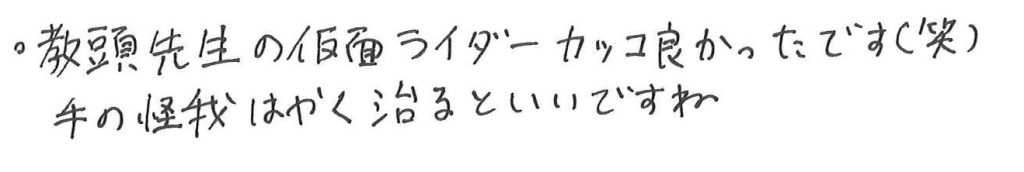 。教頭先生の仮面ライダーカッコ良かったです(笑)
手の怪我はやく治るといいですね